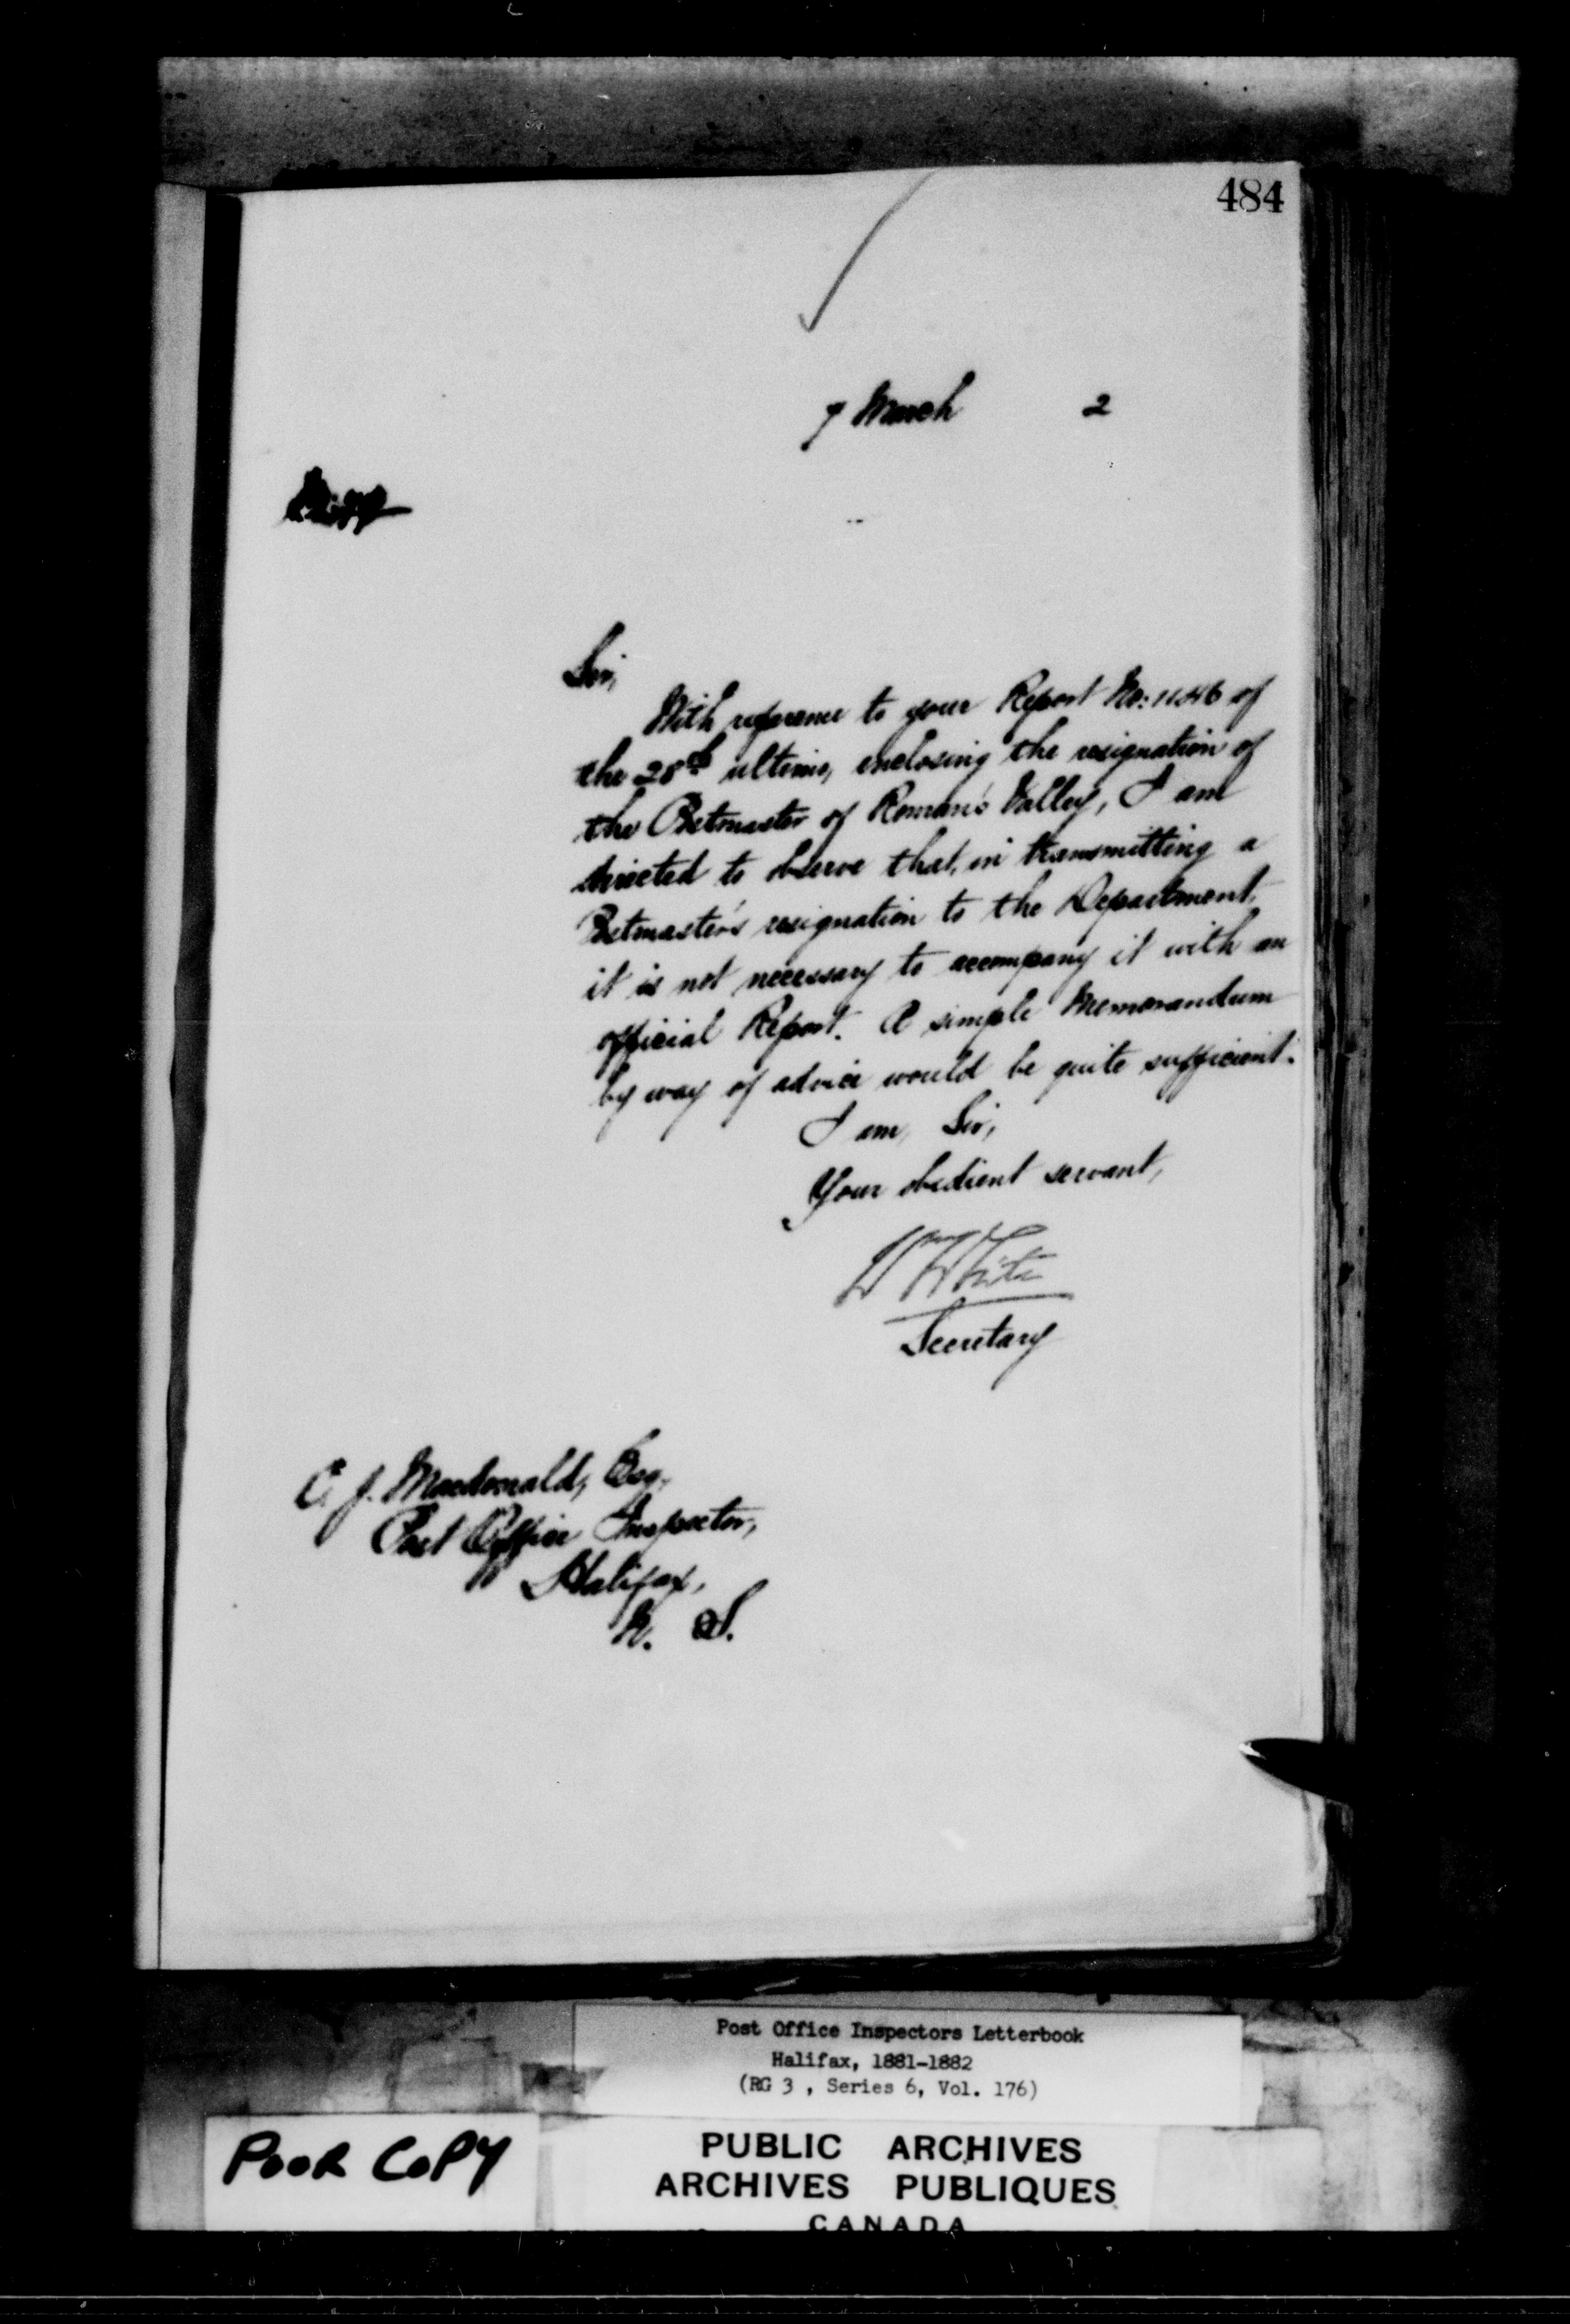 484
7 March 2
Sir,
With reference to your Report No: 11546 of
the 28th ultimo, enclosing the resignation of
the Postmaster of Roman's Valley, I am
directed to observe that, in transmitting a
Postmaster's resignation to the Department,
it is not necessary to accompany it with an
official Report. A simple Memorandum
by way of advice would be quite sufficient.
I am, Sir,
Your obedient servant,
Wm White
Secretary
C. J. Macdonald, Esq,
Post Office Inspector,
Halifax,
N. S.
Post Office Inspectors Letterbook
Halifax, 1881-1882
(RG 3 , Series 6, Vol. 176)
POOR COPY
PUBLIC ARCHIVES
ARCHIVES PUBLIQUES
CANADA